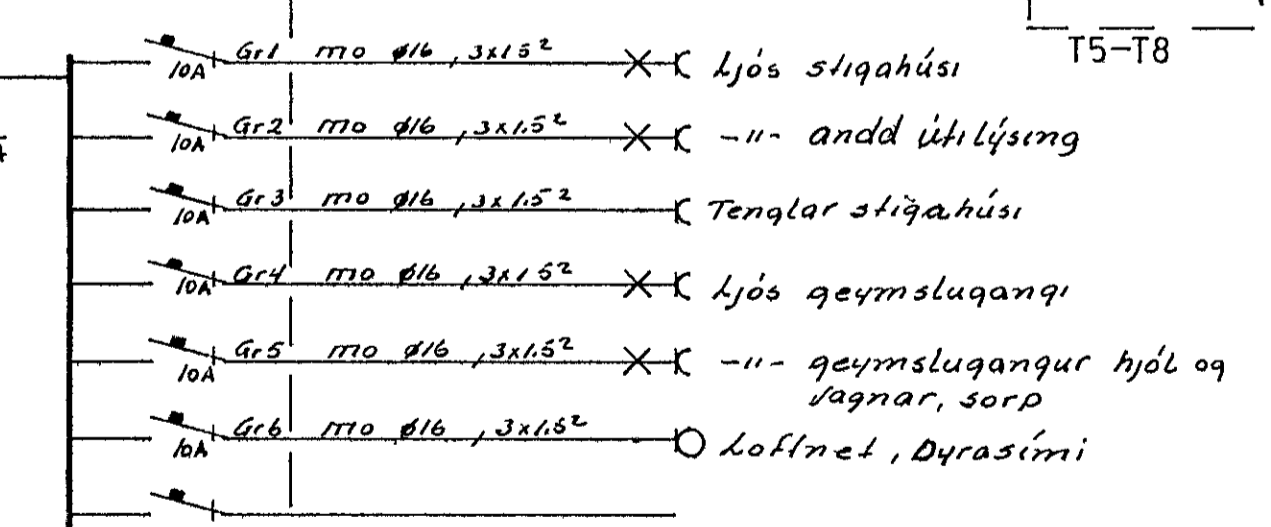 T5-T8
10A Gr1 mo ø16, 3x1.5² Ljós stigahúsi
10A Gr2 mo ø16, 3x1.5² -"- andd útilýsing
10A Gr3 mo ø16, 3x1.5² Tenglar stigahúsi
10A Gr4 mo ø16, 3x1.5² Ljós geymslugangi
10A Gr5 mo ø16, 3x1.5² -"- geymslugangur hjól og
vagnar, sorp
10A Gr6 mo ø16, 3x1.5² Loftnet, Dyrasími